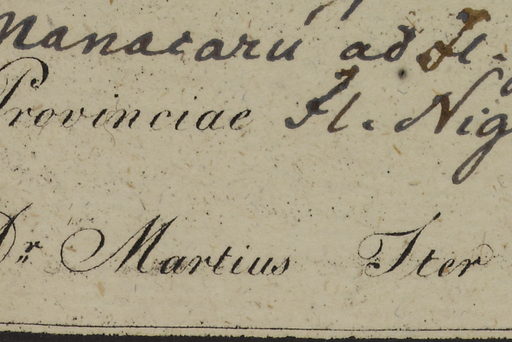 Manacarú ad Fl.
Provinciae Fl. Nig
Dr Martius Iter